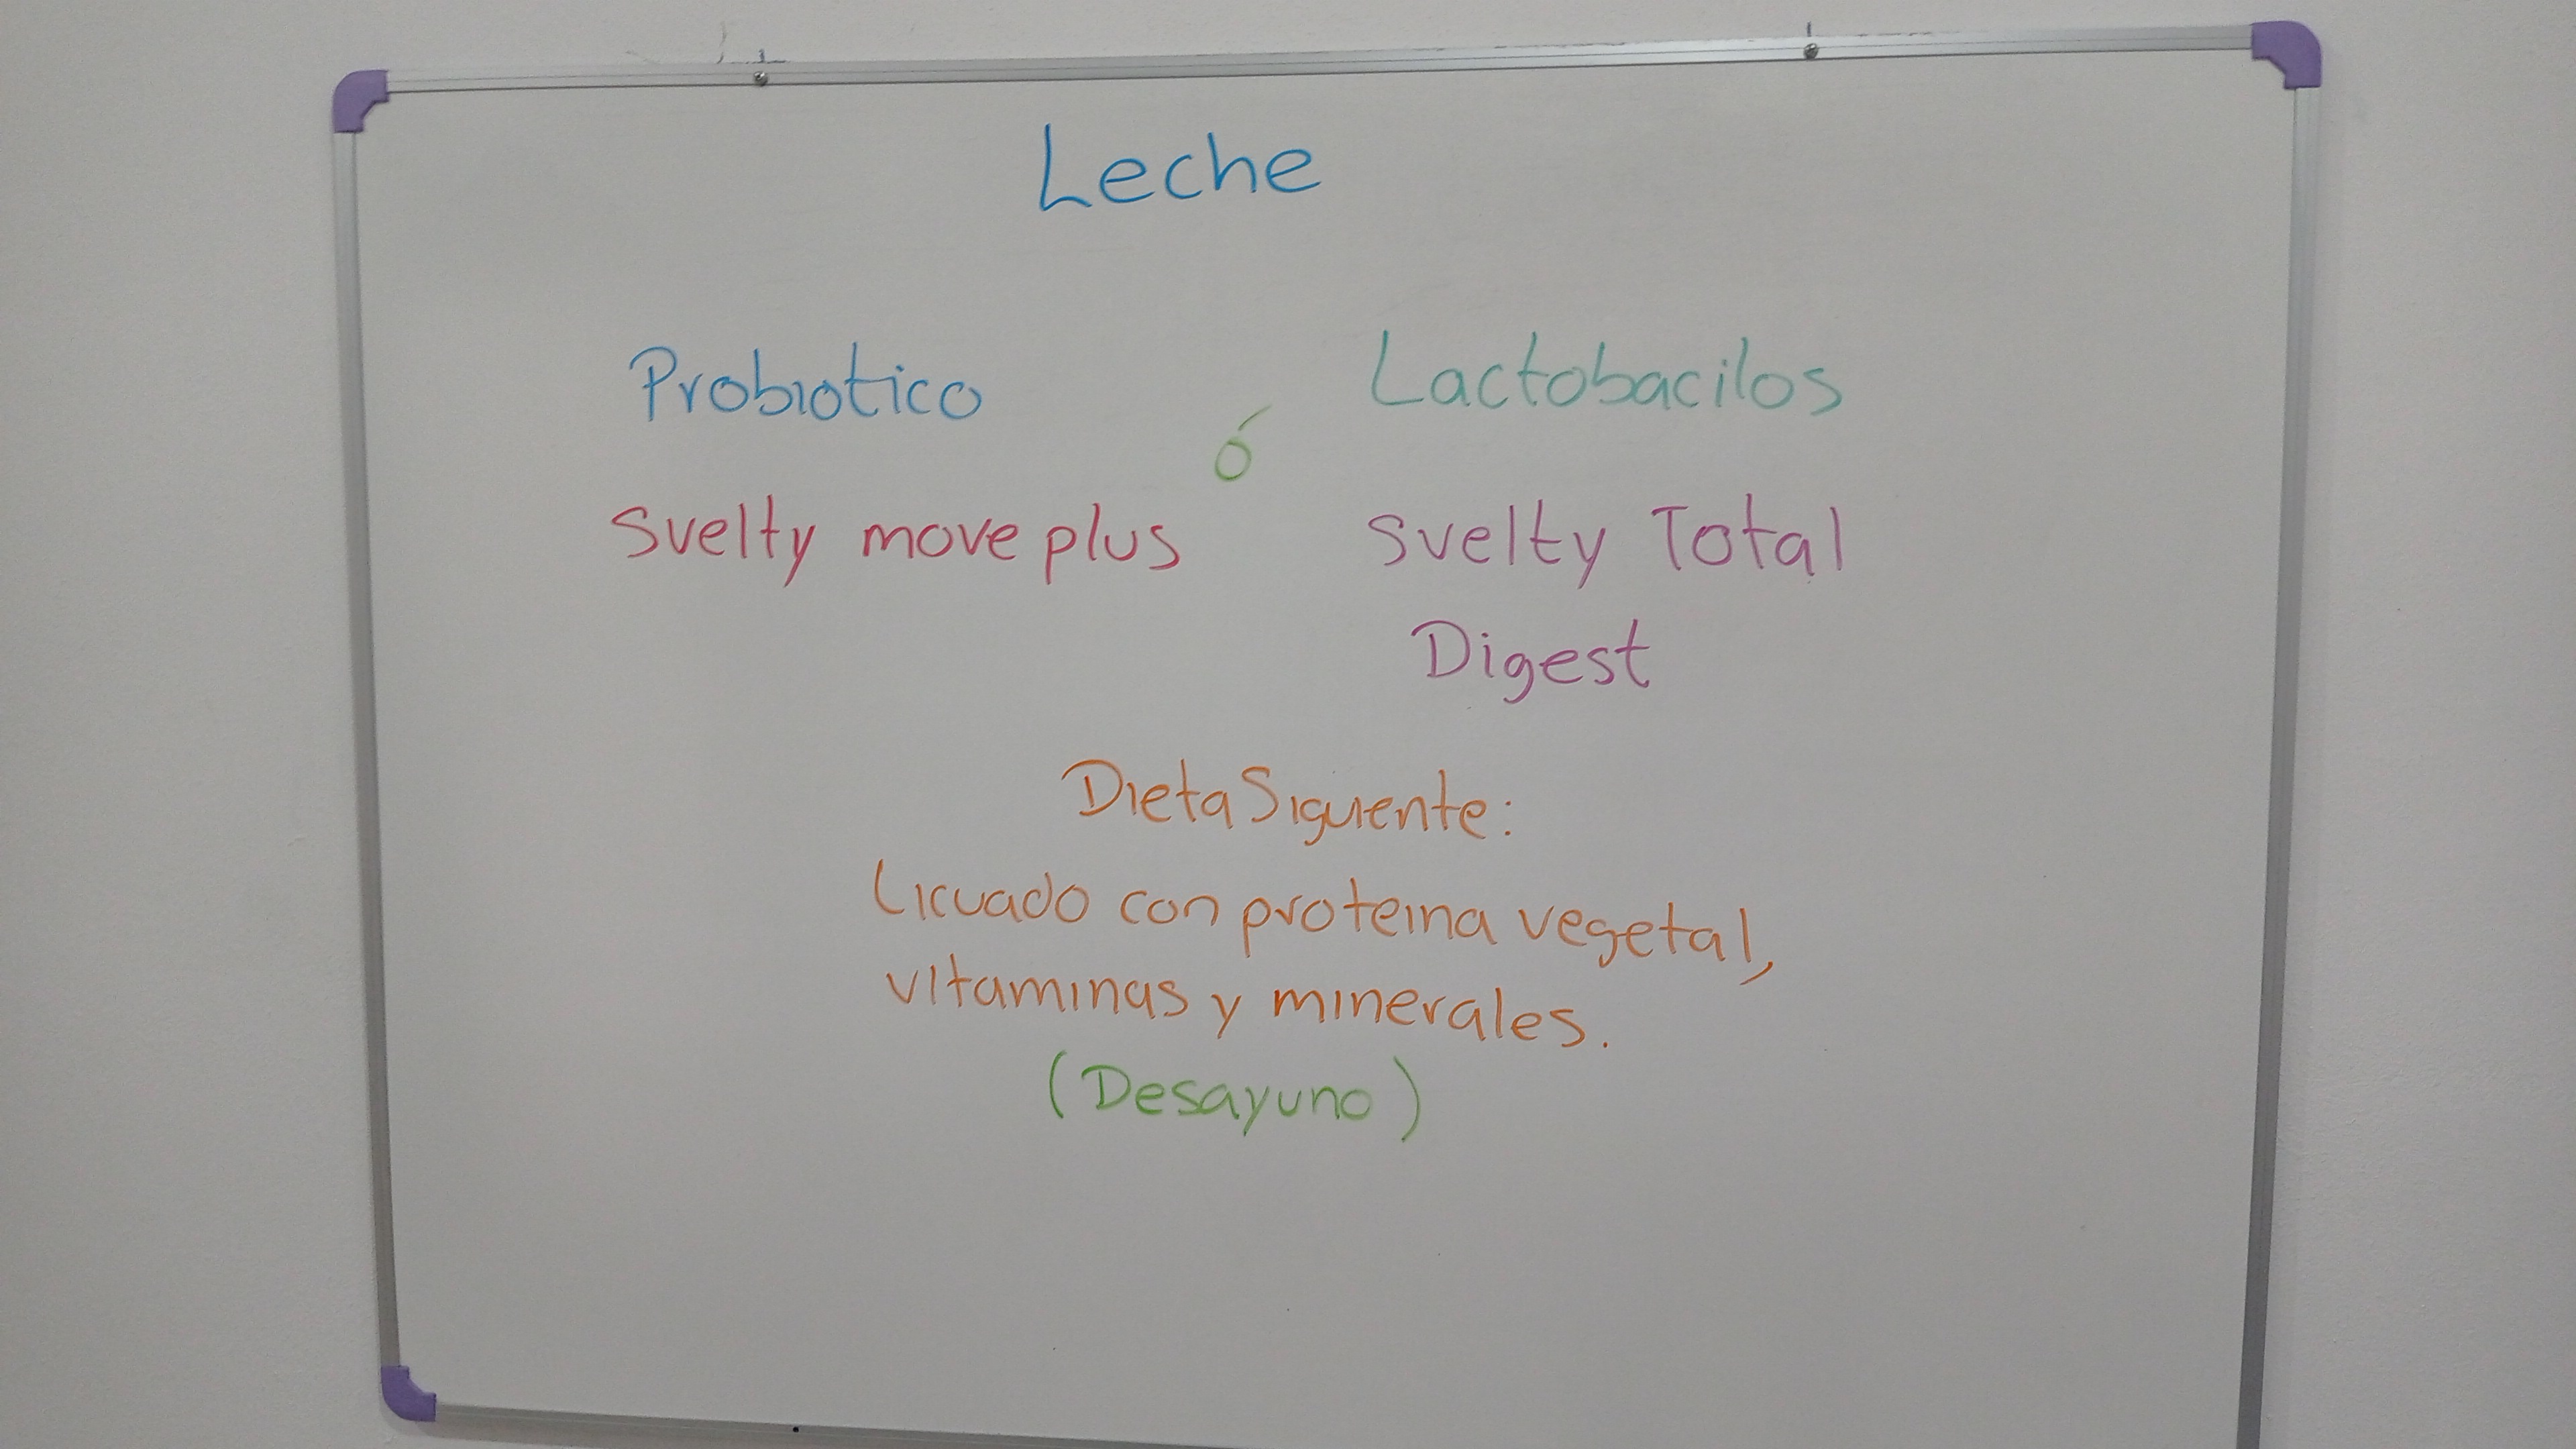 Leche
Probiotico
ó
Lactobacilos
Svelty move plus
Svelty Total
Digest
Dieta Siguiente:
Licuado con proteina vegetal,
vitaminas y minerales.
(Desayuno)